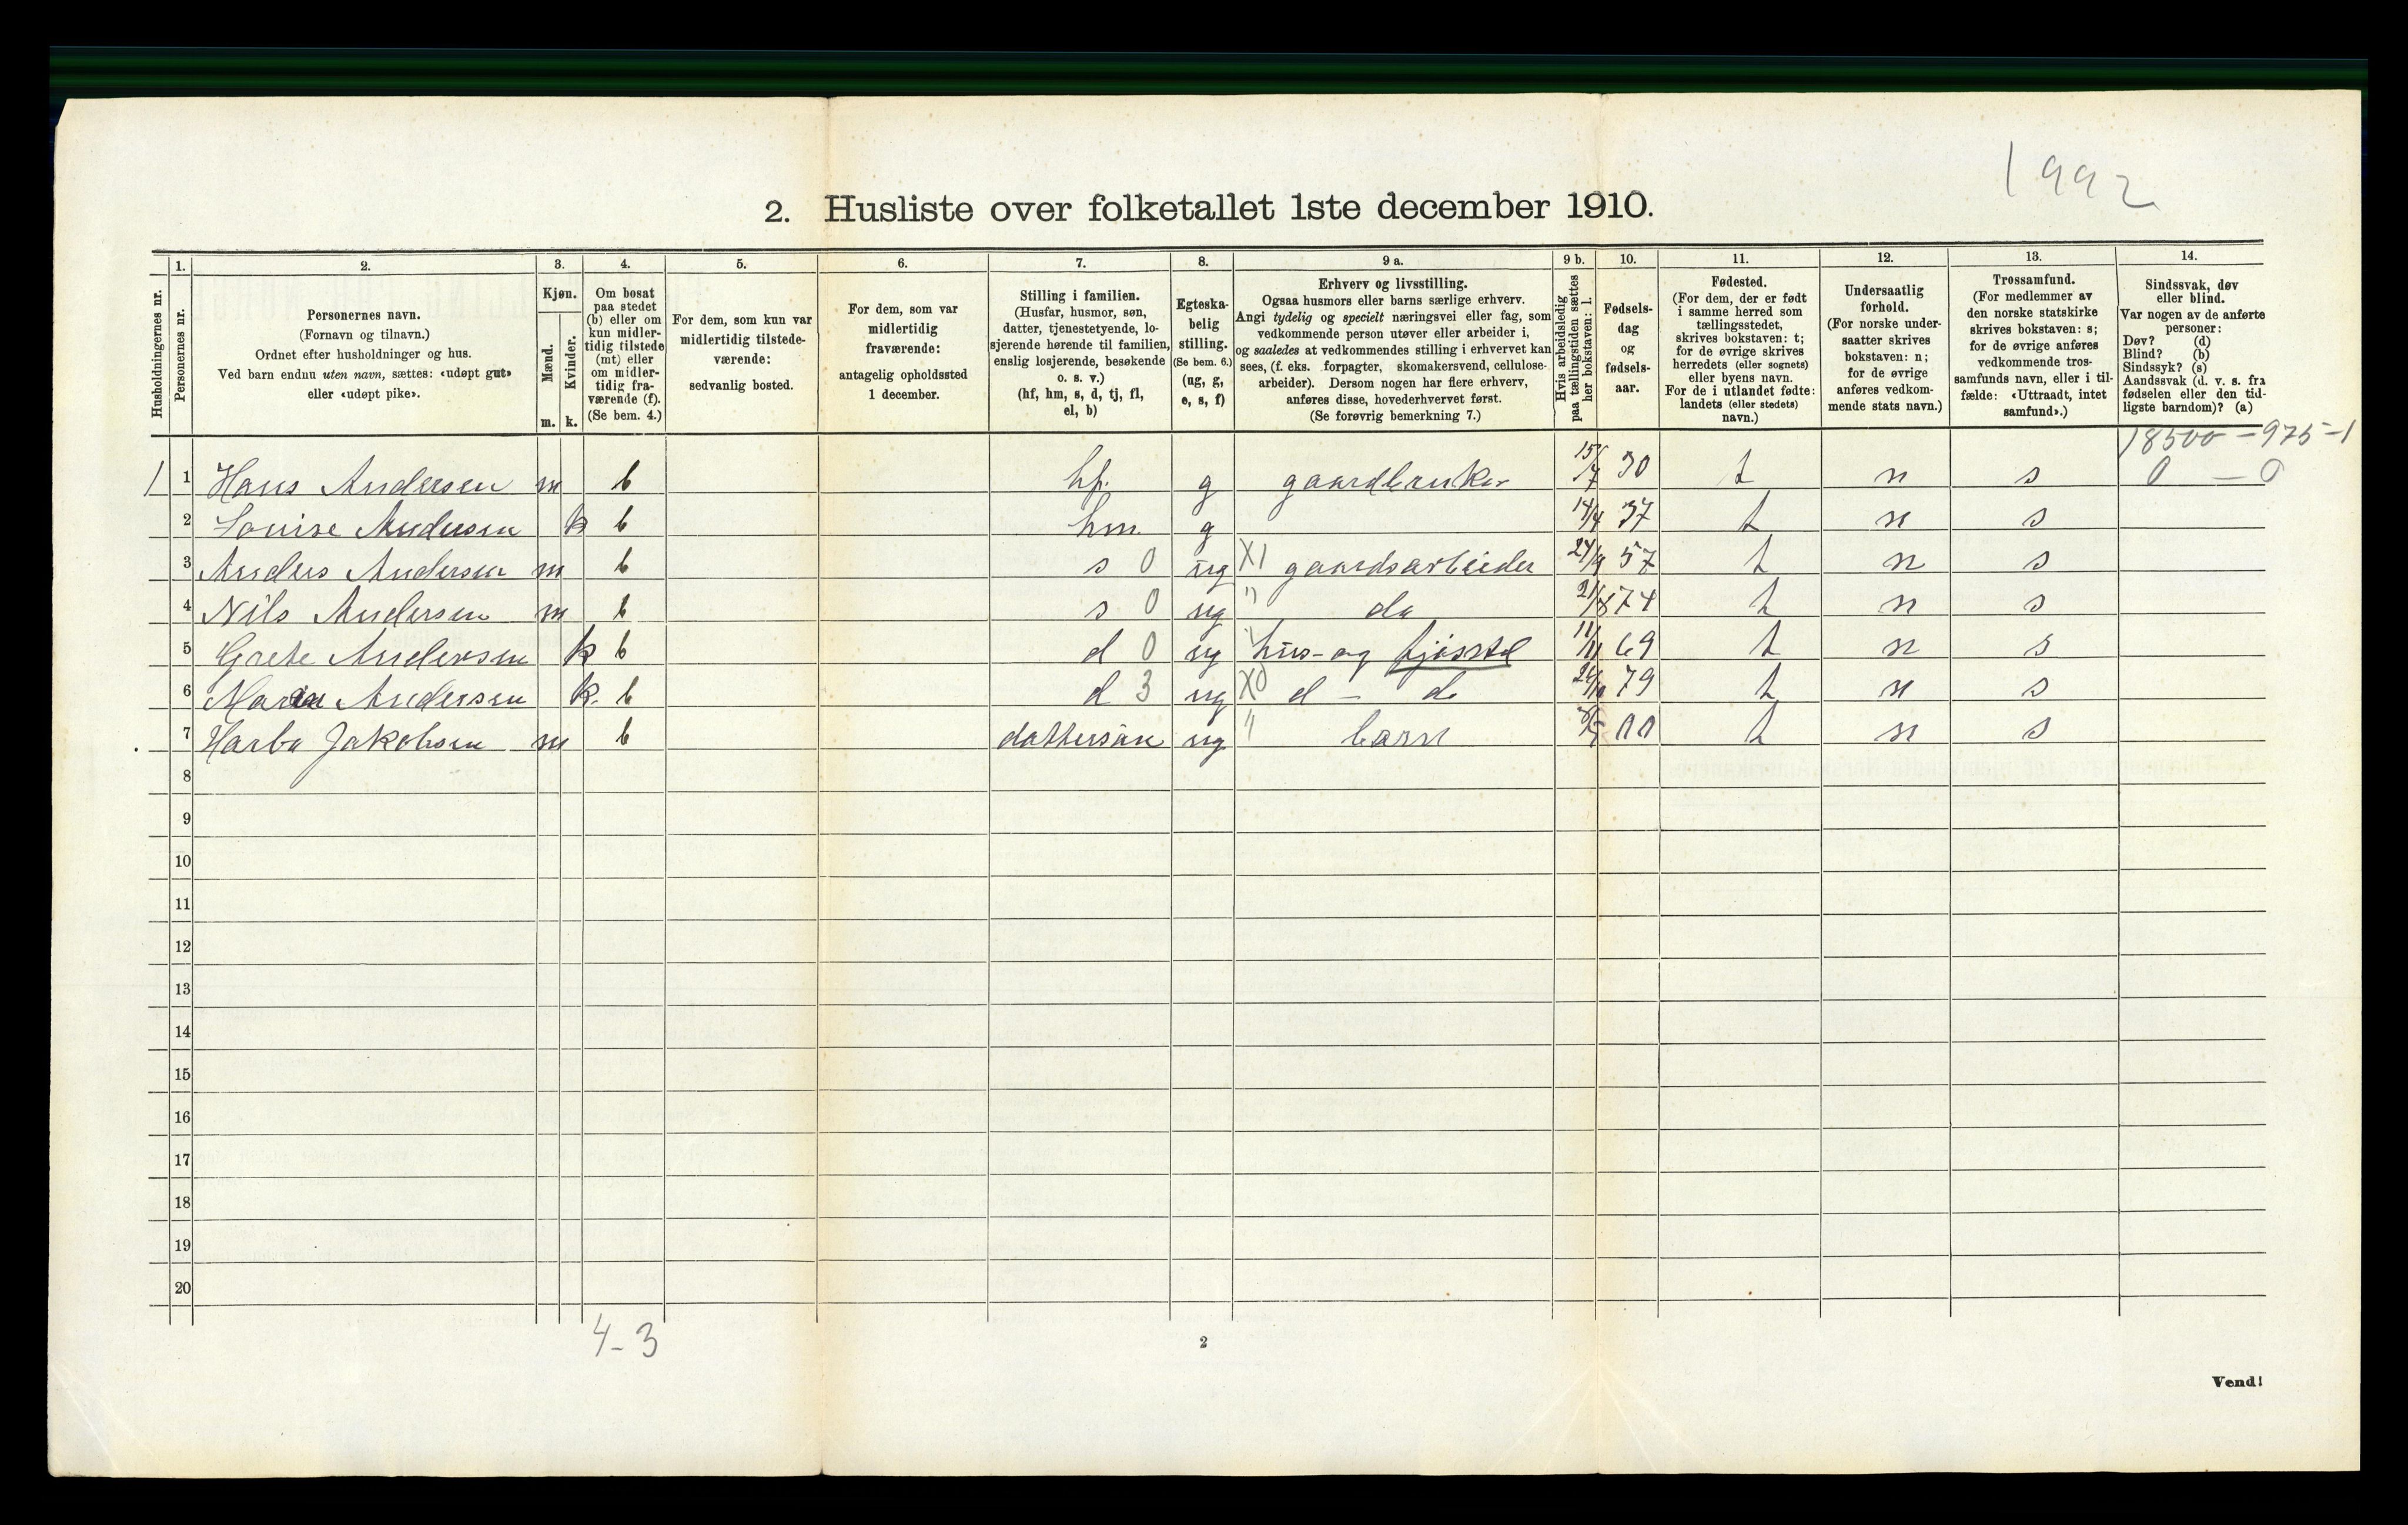 1992
2. Husliste over folketallet 1ste december 1910.
Husholdningernes nr.
1.
Personernes nr.
2.
Personernes navn.
(Fornavn og tilnavn.)
Ordnet efter husholdninger og hus.
Ved barn endnu uten navn, sættes: «udøpt gut»
eller «udøpt pike».
3.
Kjøn.
Mænd.
Kvinder.
m. k.
4.
Om bosat
paa stedet
(b) eller om
kun midler-
tidig tilstede
(mt) eller
om midler-
tidig fra-
værende (f).
(Se bem. 4.)
5.
For dem, som kun var
midlertidig tilstede-
værende:
sedvanlig bosted.
6.
For dem, som var
midlertidig
fraværende:
antagelig opholdssted
1 december.
7.
Stilling i familien.
(Husfar, husmor, søn,
datter, tjenestetyende, lo-
sjerende hørende til familien,
enslig losjerende, besøkende
o. s. v.)
(hf, hm, s, d, tj, fl,
el, b)
8.
Egteska-
belig
stilling.
(Se bem. 6.)
(ug, g,
e, s, f)
9 a.
Erhverv og livsstilling.
Ogsaa husmors eller barns særlige erhverv.
Angi tydelig og specielt næringsvei eller fag, som
vedkommende person utøver eller arbeider i,
og saaledes at vedkommendes stilling i erhvervet kan
sees, (f. eks. forpagter, skomakersvend, cellulose-
arbeider). Dersom nogen har flere erhverv,
anføres disse, hovederhvervet først.
(Se forøvrig bemerkning 7.)
9 b.
Hvis arbeidsledig
paa tællingstiden sættes
her bokstaven: l.
10.
Fødsels-
dag
og
fødsels-
aar.
11.
Fødested.
(For dem, der er født
i samme herred som
tællingsstedet,
skrives bokstaven: t;
for de øvrige skrives
herredets (eller sognets)
eller byens navn.
For de i utlandet fødte:
landets (eller stedets)
navn.)
12.
Undersaatlig
forhold.
(For norske under-
saatter skrives
bokstaven: n;
for de øvrige
anføres vedkom-
mende stats navn.)
13.
Trossamfund.
(For medlemmer av
den norske statskirke
skrives bokstaven: s;
for de øvrige anføres
vedkommende tros-
samfunds navn, eller i til-
fælde: «Uttraadt, intet
samfund».)
14.
Sindssvak, døv
eller blind.
Var nogen av de anførte
personer:
Døv? (d)
Blind? (b)
Sindssyk? (s)
Aandssvak (d. v. s. fra
fødselen eller den tid-
ligste barndom)? (a)
18500-975-1
1 1 Hans Andersen m b hf. g gaardbruker 15/7 30 t n s 0 - 0
2 Louise Andersen k b hm. g 14/4 37 t n s
3 Anders Andersen m b s 0 ug X1 gaardsarbeider 24/9 57 t n s
4 Nils Andersen m b s 0 ug " do 21/8 74 t n s
5 Grete Andersen k b d 0 ug " hus- og fjøsstel 11/11 69 t n s
6 Andersen k. b d 3 ug X0 d - do 79 t n s
7 Jakobsen m b dattersøn ug " barn 00 t n s
8
9
10
11
12
13
14
15
16
17
18
19
20
4-3
2
Vend!